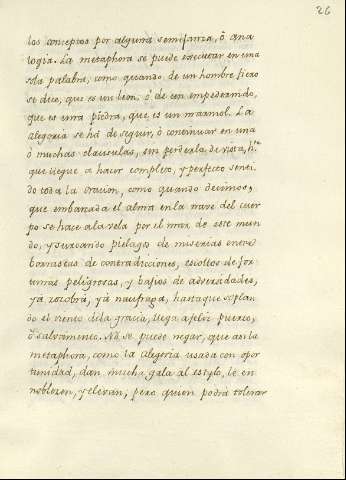 26
los conceptos por alguna semejanza, ò ana
logia. La metaphora se puede executar en una
sola palabra, como quando de un hombre fiero
se dice, que es un leon, ò de un empedernido,
que es una piedra, que es un marmol. La
alegoria se há de seguir, ò continuar en una
ò muchas clausulas, sin perderla de vista, h.ta
que llegue a hacer completo, y perfecto senti
do toda la oracion, como quando decimos,
que embarcada el alma en la nave del cuer
po se hace ala vela por el mar de este mun
do, y surcando pielagos de miserias entre
borrascas de contradicciones, escollos de for
tunas peligrosas, y bajios de adversidades,
yá zozobra, yá naufraga, hasta que soplan
do el viento dela gracia, llega a feliz puerto,
ò salvamento. No se puede negar, que asi la
metaphora, como la alegoria usada con opor
tunidad, dan mucha gala al estylo, le en
noblezen, y elevan; pero quien podrà tolerar